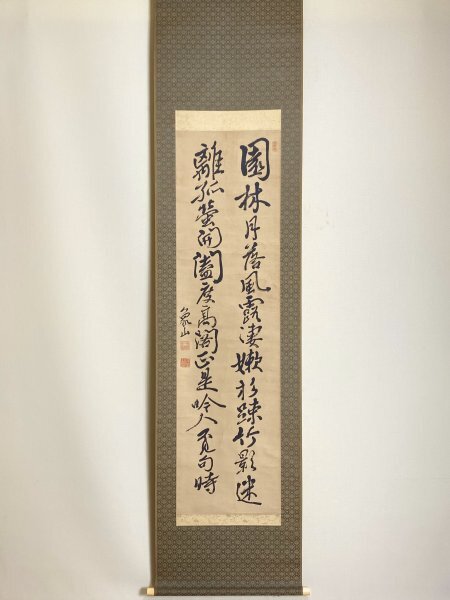 園林月落風露凄嫩杉踈竹影迷
離孤螢開闔度高閣正是吟人覓句時
象山